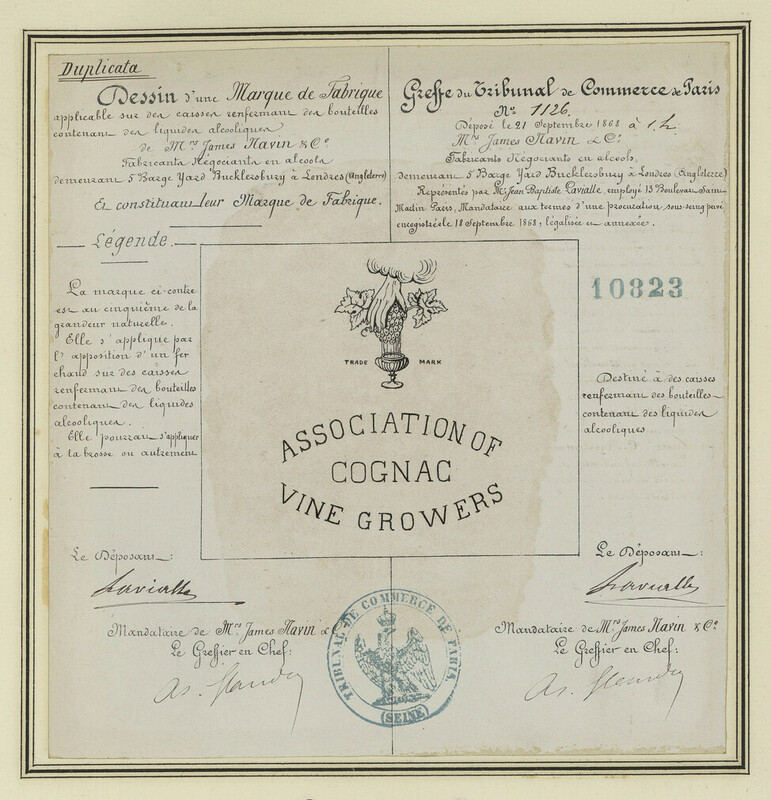 Duplicata
Dessin d'une Marque de Fabrique
applicable sur des caisses renfermant des bouteilles
contenant des liquides alcooliques
de Mrs James Navin & Co
Fabricants Négociants en alcools
demeurant 5 Barge Yard Bucklersbury à Londres (Angleterre)
Et constituant leur Marque de Fabrique.
Légende.
La marque ci-contre
est au cinquième de la
grandeur naturelle.
Elle s'applique par
l'apposition d'un fer
chaud sur des caisses
renfermant des bouteilles
contenant des liquides
alcooliques.
Elle pourrait s'appliquer
à la brosse ou autrement
Greffe du Tribunal de Commerce de Paris
No. 1126.
Déposé le 21 Septembre 1868 à 1. h.
Mrs James Navin & Co.
Fabricants Négociants en alcools,
demeurant 5 Barge Yard Bucklersbury à Londres (Angleterre)
Représentés par Mr Jean Baptiste Lavialle, employé 13 Boulevard Saint
Martin Paris, Mandataire aux termes d'une procuration sous-seing privé
enregistrée le 18 Septembre 1868, légalisée et annexée.
10823
TRADE MARK
ASSOCIATION OF
COGNAC
VINE GROWERS
Destiné à des caisses
renfermant des bouteilles
contenant des liquides
alcooliques
Le Déposant:
Lavialle
Mandataire de Mrs James Navin & Co
Le Greffier en Chef:
Le Déposant:
Lavialle
Mandataire de Mrs James Navin & Co
Le Greffier en Chef:
TRIBUNAL DE COMMERCE DE PARIS.
(SEINE)